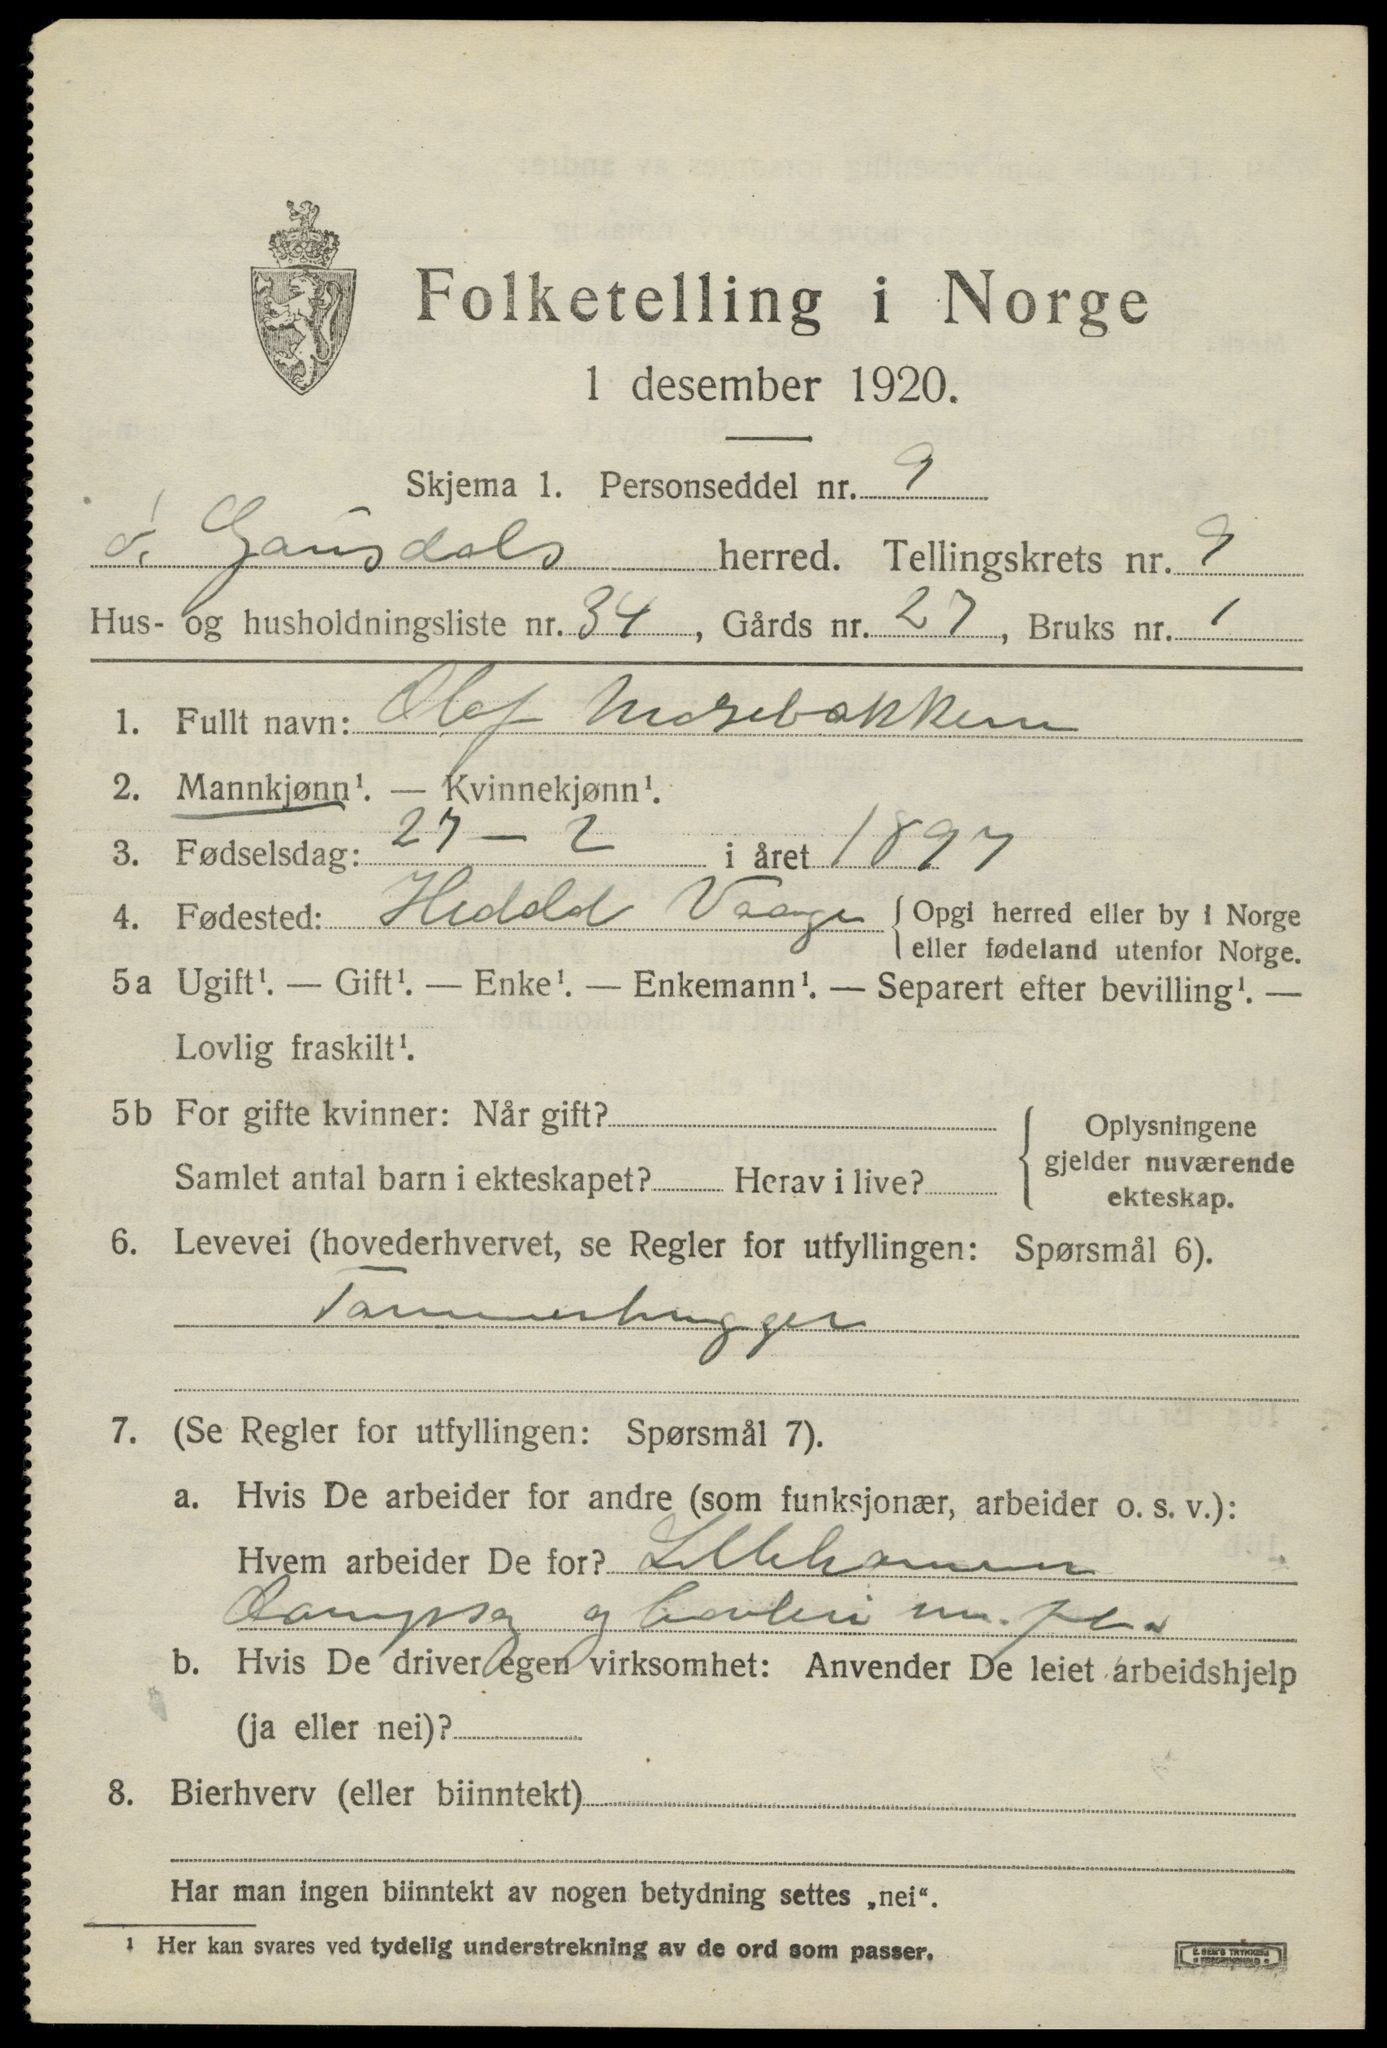 Folketelling i Norge
1 desember 1920.
Skjema 1. Personseddel nr. 9
Ø. Gausdals herred. Tellingskrets nr. 9
Hus- og husholdningsliste nr. 34, Gårds nr. 27, Bruks nr. 1
1. Fullt navn: Olaf
2. Mannkjønn¹. — Kvinnekjønn¹.
3. Fødselsdag: 27 – 2 i året 1897
4. Fødested: Hedal Vaage { Opgi herred eller by i Norge
eller fødeland utenfor Norge.
5a Ugift¹. — Gift¹. — Enke¹. — Enkemann¹. — Separert efter bevilling¹. —
Lovlig fraskilt¹.
5b For gifte kvinner: Når gift?
Samlet antal barn i ekteskapet? Herav i live?
{ Oplysningene
gjelder nuværende
ekteskap.
6. Levevei (hovederhvervet, se Regler for utfyllingen: Spørsmål 6).
Tømmerhugger
7. (Se Regler for utfyllingen: Spørsmål 7).
a. Hvis De arbeider for andre (som funksjonær, arbeider o. s. v.):
Hvem arbeider De for? Lillehammer
Dampsag og høvleri
b. Hvis De driver egen virksomhet: Anvender De leiet arbeidshjelp
(ja eller nei)?
8. Bierhverv (eller biinntekt)
Har man ingen biinntekt av nogen betydning settes „nei“.
¹ Her kan svares ved tydelig understrekning av de ord som passer.